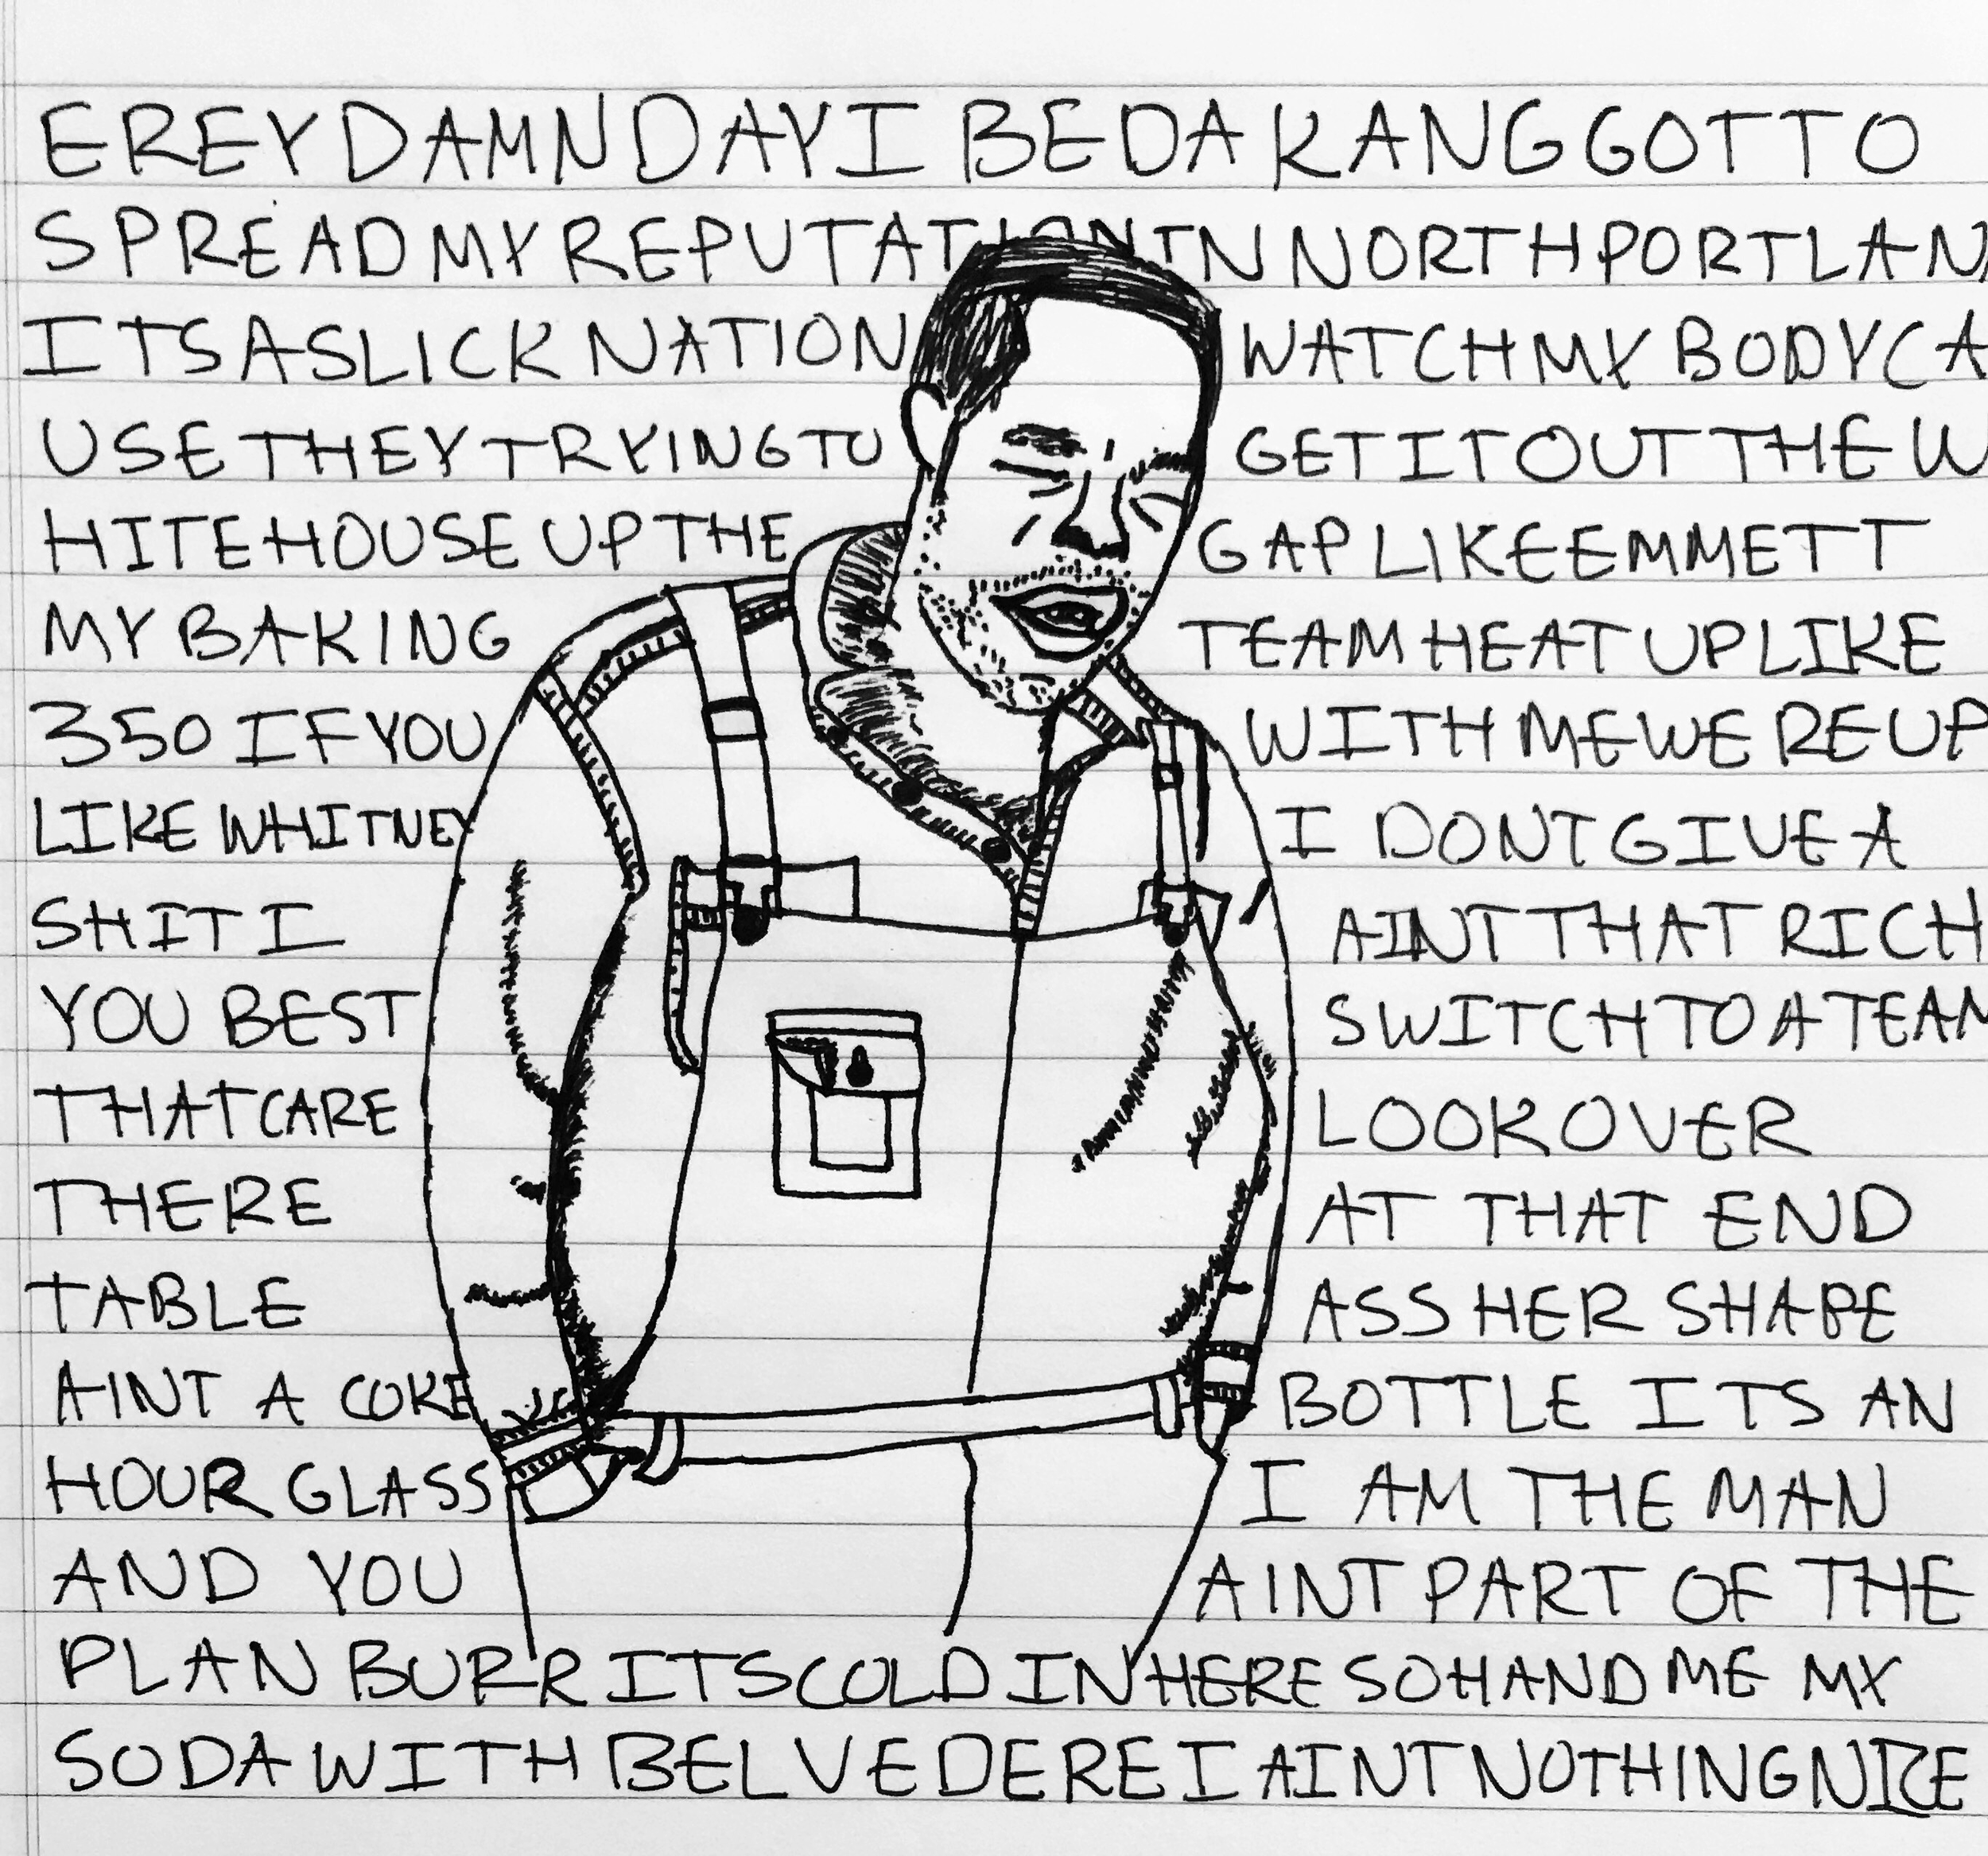 EREY DAMN DAY I BE DA KANG GOT TO
SPREAD MY REPUTATION IN NORTH PORTLAN
ITS A SLICK NATION WATCH MY BODY CA
USE THEY TRYING TO GET IT OUT THE W
HITE HOUSE UP THE GAP LIKE EMMETT
MY BAKING TEAM HEAT UP LIKE
350 IF YOU WITH ME WE RE UP
LIKE WHITNEY I DONT GIVE A
SHIT I AINT THAT RICH
YOU BEST SWITCH TO A TEAM
THAT CARE LOOK OVER
THERE AT THAT END
TABLE ASS HER SHAPE
AINT A COKE BOTTLE ITS AN
HOUR GLASS I AM THE MAN
AND YOU AINT PART OF THE
PLAN BURR ITS COLD IN HERE SO HAND ME MY
SODA WITH BELVEDERE I AINT NOTHING NICE